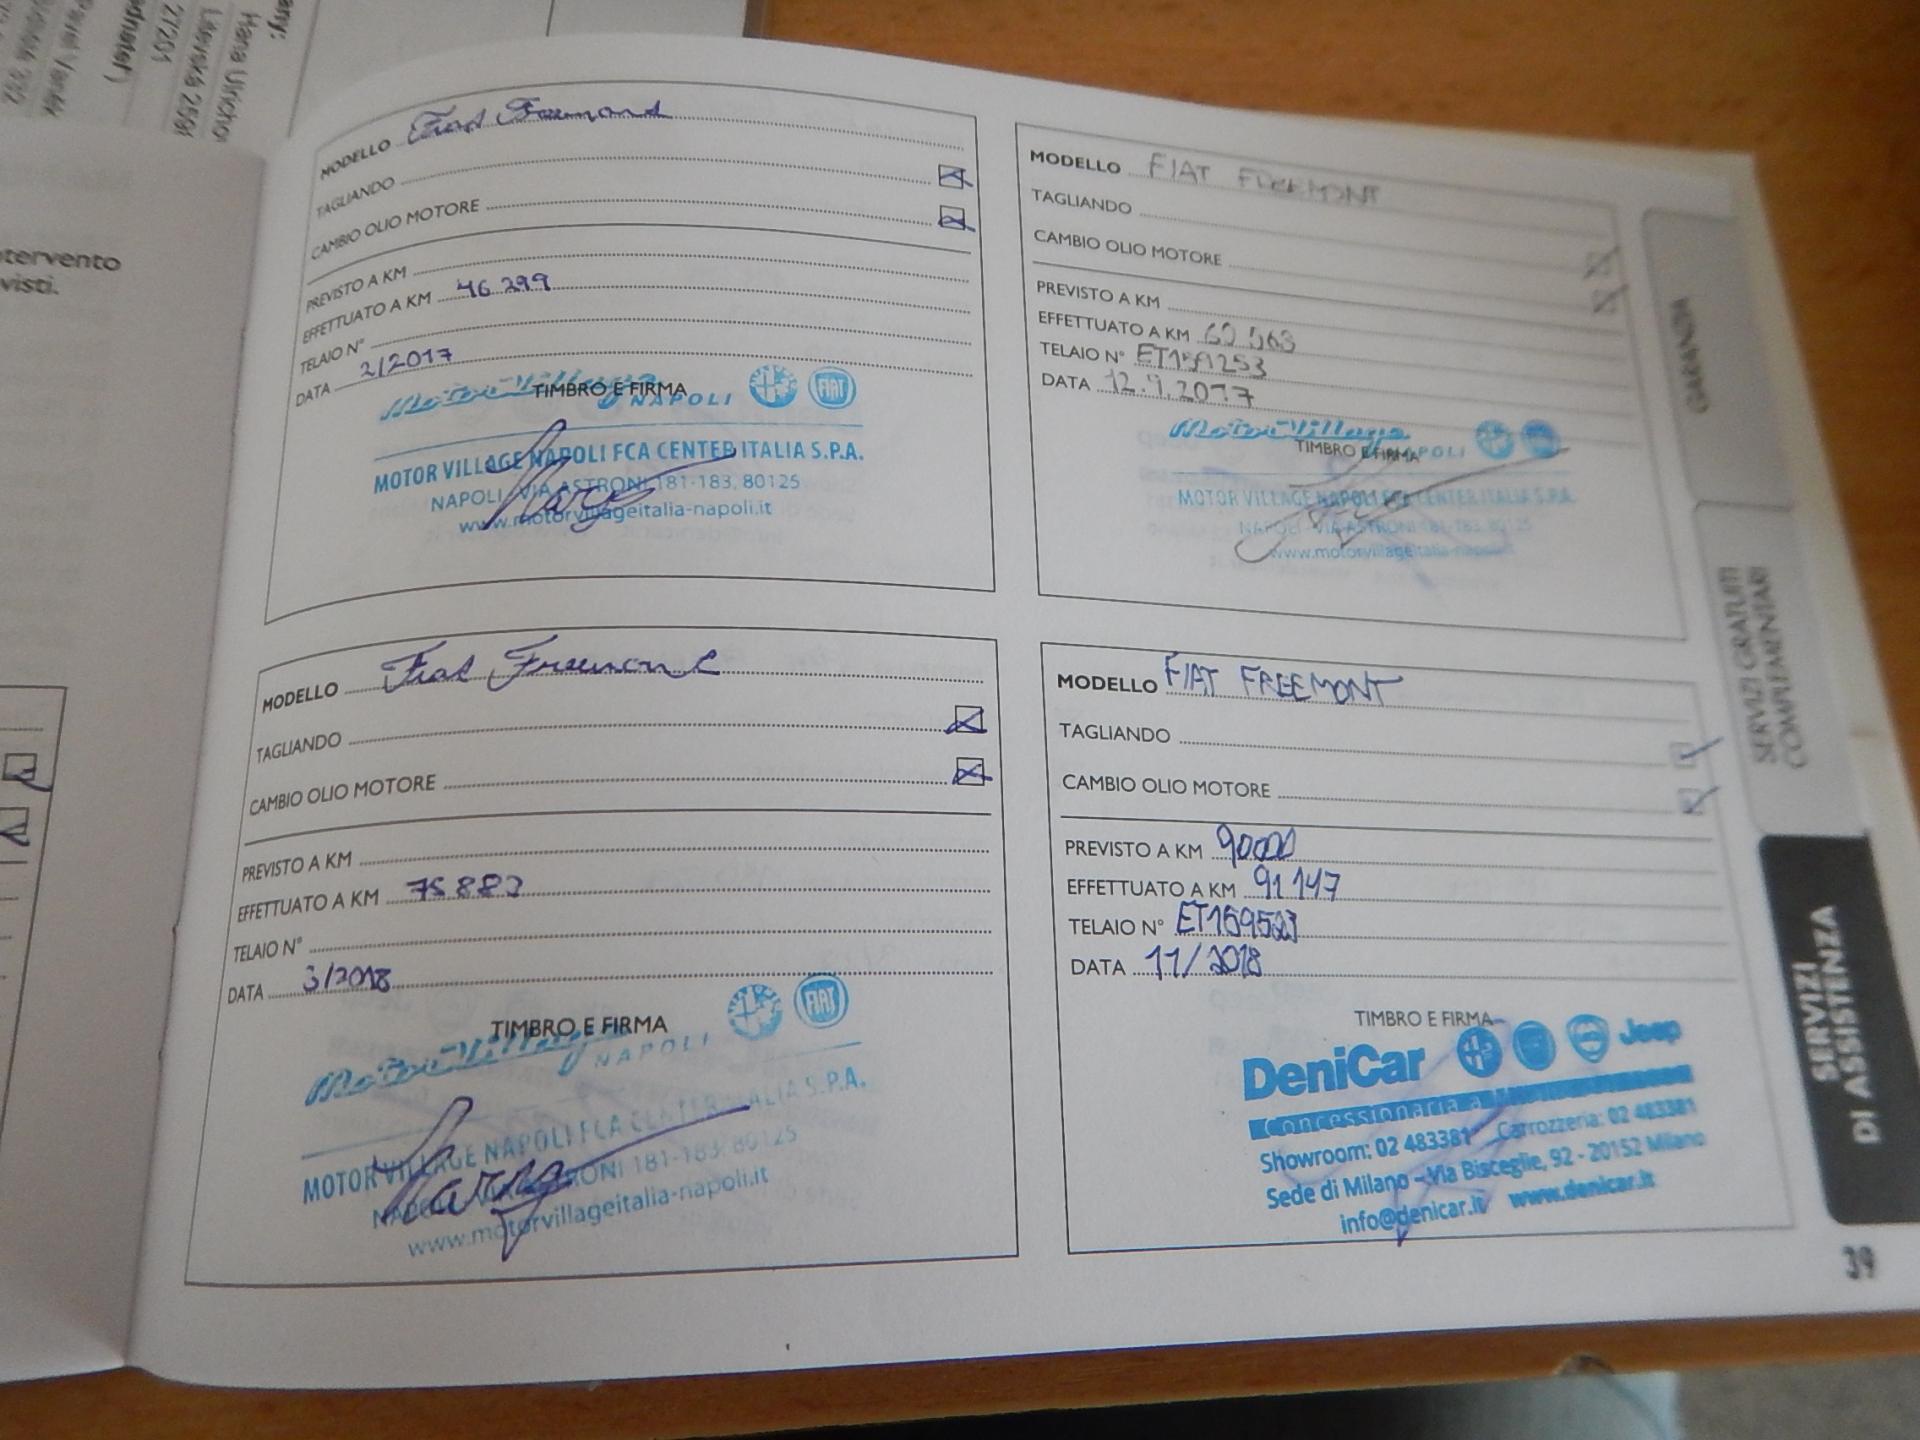 any:
Hana
27201
Pavel
tervento
visti.
MODELLO Fiat Freemond
TAGLIANDO
CAMBIO OLIO MOTORE
PREVISTO A KM
EFFETTUATO A KM 46 299
TELAIO N°
DATA 2/2017
TIMBRO E FIRMA
Motor Village
NAPOLI
FIAT
MOTOR VILLAGE NAPOLI FCA CENTER ITALIA S.P.A.
NAPOLI - VIA ASTRONI 181-183, 80125
www.motorvillageitalia-napoli.it
MODELLO FIAT FREEMONT
TAGLIANDO
CAMBIO OLIO MOTORE
PREVISTO A KM
EFFETTUATO A KM
TELAIO N°
DATA
TIMBRO E FIRMA
Motor Village
NAPOLI
MOTOR VILLAGE NAPOLI FCA CENTER ITALIA S.P.A.
NAPOLI - VIA ASTRONI 181-183, 80125
www.motorvillageitalia-napoli.it
MODELLO Fiat Freemont
TAGLIANDO
CAMBIO OLIO MOTORE
PREVISTO A KM
EFFETTUATO A KM 75 883
TELAIO N°
DATA 3/2018
TIMBRO E FIRMA
Motor Village
NAPOLI
FIAT
MOTOR VILLAGE NAPOLI FCA CENTER ITALIA S.P.A.
NAPOLI - VIA ASTRONI 181-183, 80125
www.motorvillageitalia-napoli.it
MODELLO FIAT FREEMONT
TAGLIANDO
CAMBIO OLIO MOTORE
PREVISTO A KM 90000
EFFETTUATO A KM 91 147
TELAIO N°
DATA 11/2018
TIMBRO E FIRMA
DeniCar
Jeep
Concessionaria
Showroom: 02 483381 Carrozzeria: 02 483381
Sede di Milano - Via Bisceglie, 92 - 20152 Milano
info@denicar.it www.denicar.it
GARANZIA
SERVIZI GRATUITI
COMPLEMENTARI
SERVIZI
DI ASSISTENZA
39